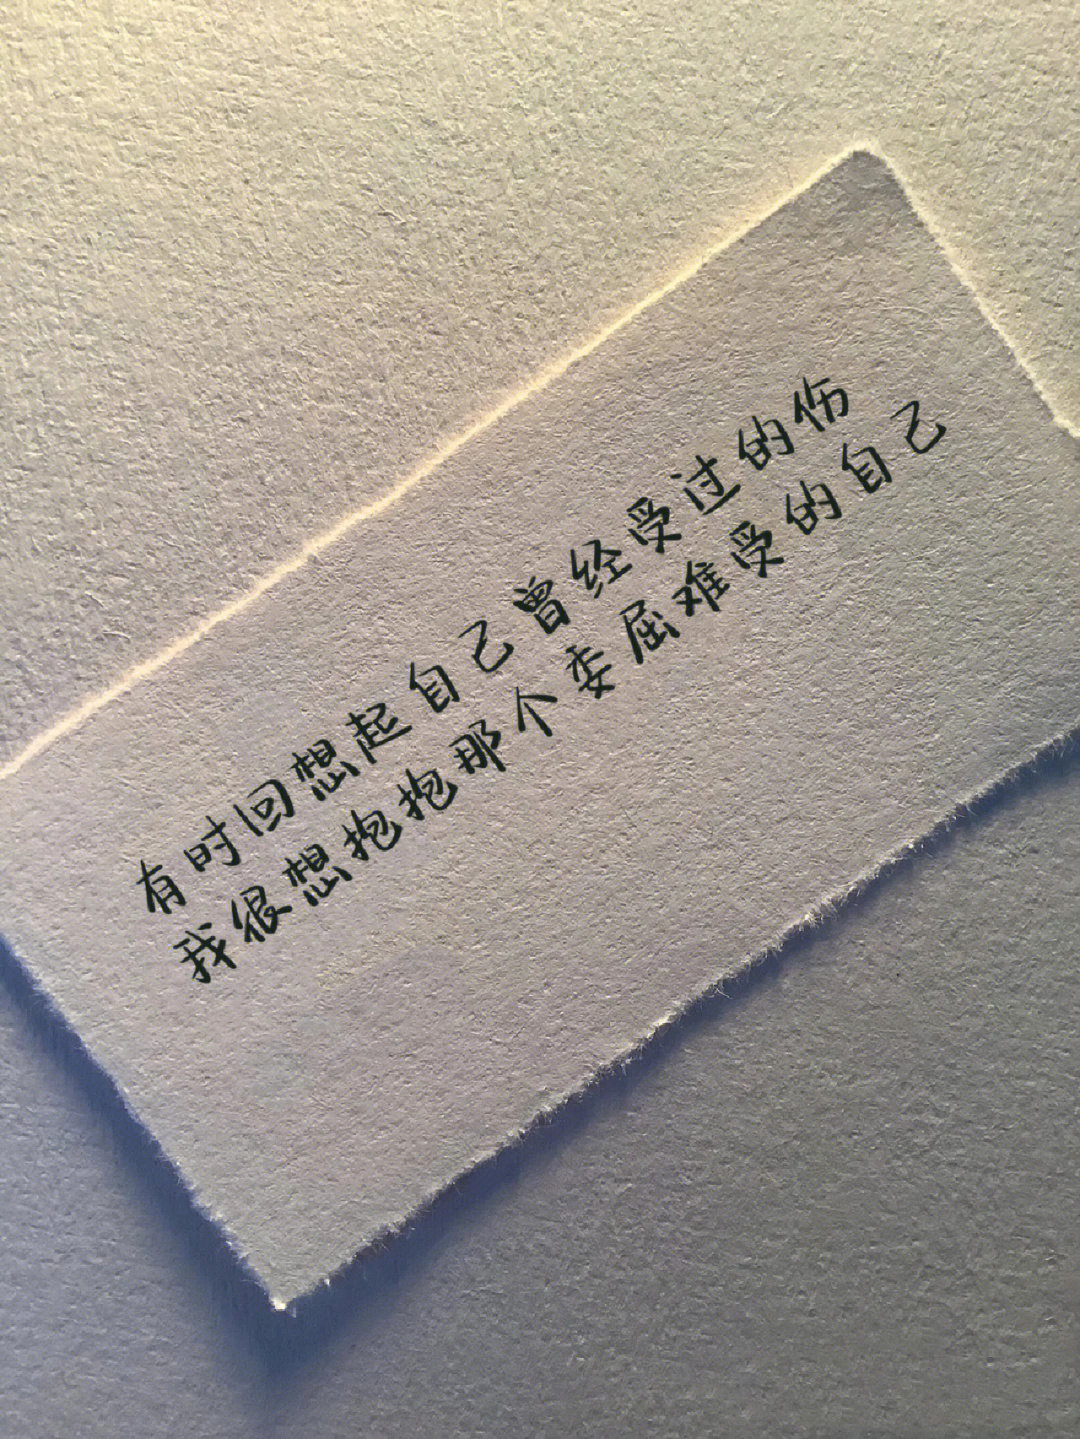 有时回想起自己曾经受过的伤
我很想抱抱那个委屈难受的自己